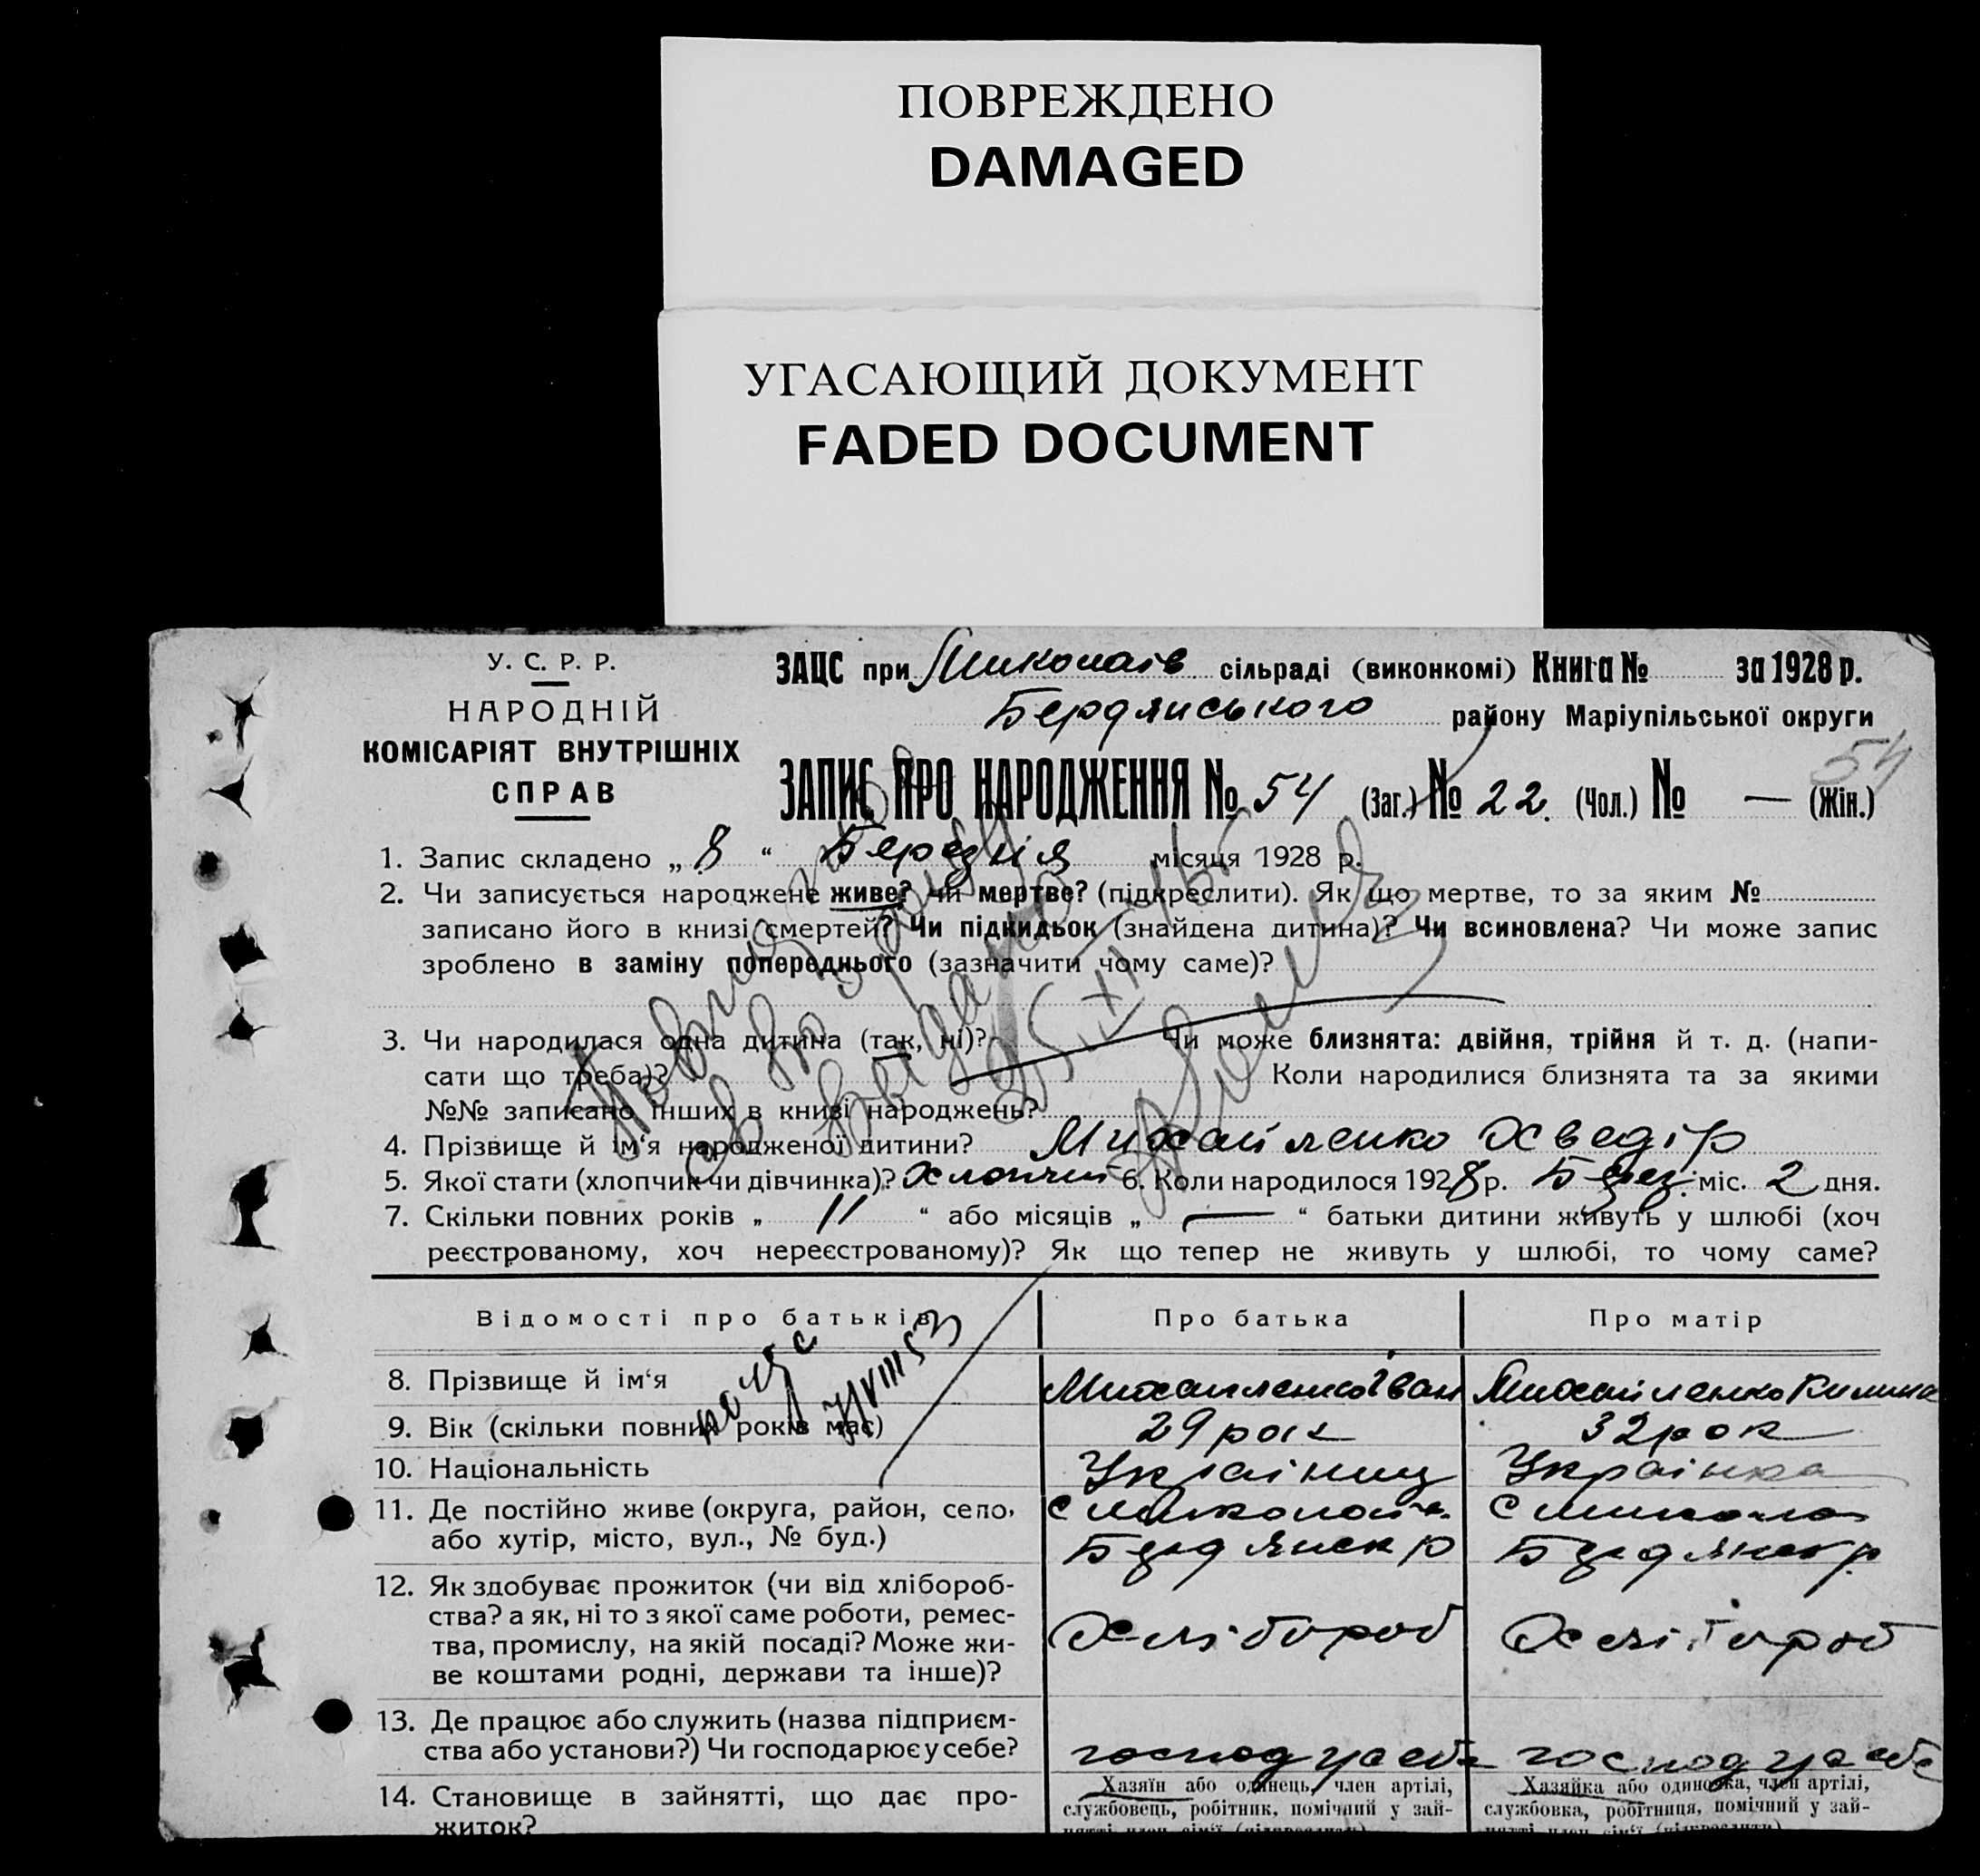 ПОВРЕЖДЕНО
DAMAGED
УГАСАЮЩИЙ ДОКУМЕНТ
FADED DOCUMENT
У. С. Р. Р.
НАРОДНІЙ
КОМІСАРІЯТ ВНУТРІШНІХ
СПРАВ
ЗАЦС при Миколаів сільраді (виконкомі) Книга № за 1928 р.
Бердянського району Маріупільської округи
54
ЗАПИС ПРО НАРОДЖЕННЯ № 54 (Заг.) № 22. (Чол.) № — (Жін.)
1. Запис складено „ 8 “ Березня місяця 1928 р.
2. Чи записується народжене живе? чи мертве? (підкреслити). Як що мертве, то за яким №
записано його в книзі смертей? Чи підкидьок (знайдена дитина)? Чи всиновлена? Чи може запис
зроблено в заміну попереднього (зазначити чому саме)?
3. Чи народилася одна дитина (так, ні)? Чи може близнята: двійня, трійня й т. д. (напи-
сати що треба)? Коли народилися близнята та за якими
№№ записано інших в книзі народжень?
4. Прізвище й ім‘я народженої дитини? Михайленко Хведір
5. Якої стати (хлопчик чи дівчинка)? Хлопчик 6. Коли народилося 1928 р. Берез. міс. 2 дня.
7. Скільки повних років „ 11 “ або місяців „ — “ батьки дитини живуть у шлюбі (хоч
реєстрованому, хоч нереєстрованому)? Як що тепер не живуть у шлюбі, то чому саме?
Відомості про батьків Про батька Про матір
8. Прізвище й ім‘я Михайленко Іван Михайленко Килина
9. Вік (скільки повних років має) 29 рок 32 рок
10. Національність Українец Українка
11. Де постійно живе (округа, район, село, с Микола с Микола
або хутір, місто, вул., № буд.) Бердянск р Бердянск р.
12. Як здобуває прожиток (чи від хлібороб-
ства? а як, ні то з якої саме роботи, ремес-
тва, промислу, на якій посаді? Може жи- Хлібороб Хлібороб
ве коштами родні, держави та інше)?
13. Де працює або служить (назва підприєм-
ства або установи?) Чи господарює у себе? господ у себе господ у себе
14. Становище в зайнятті, що дає про- Хазяїн або одинець, член артілі, Хазяйка або одиночка, член артілі,
житок? службовець, робітник, помічний у зай- службовка, робітниця, помічний у зай-